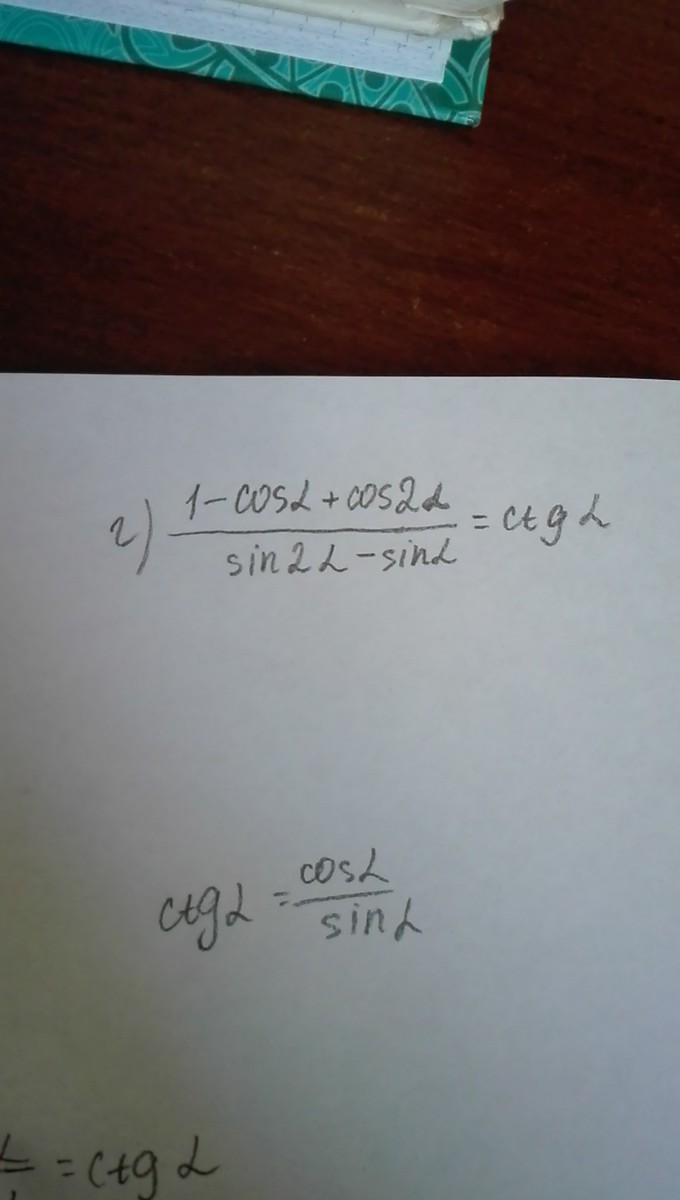 г) (1-cosα+cos2α)/(sin2α-sinα) = ctg α
ctgα = cosα/sinα
= ctg α